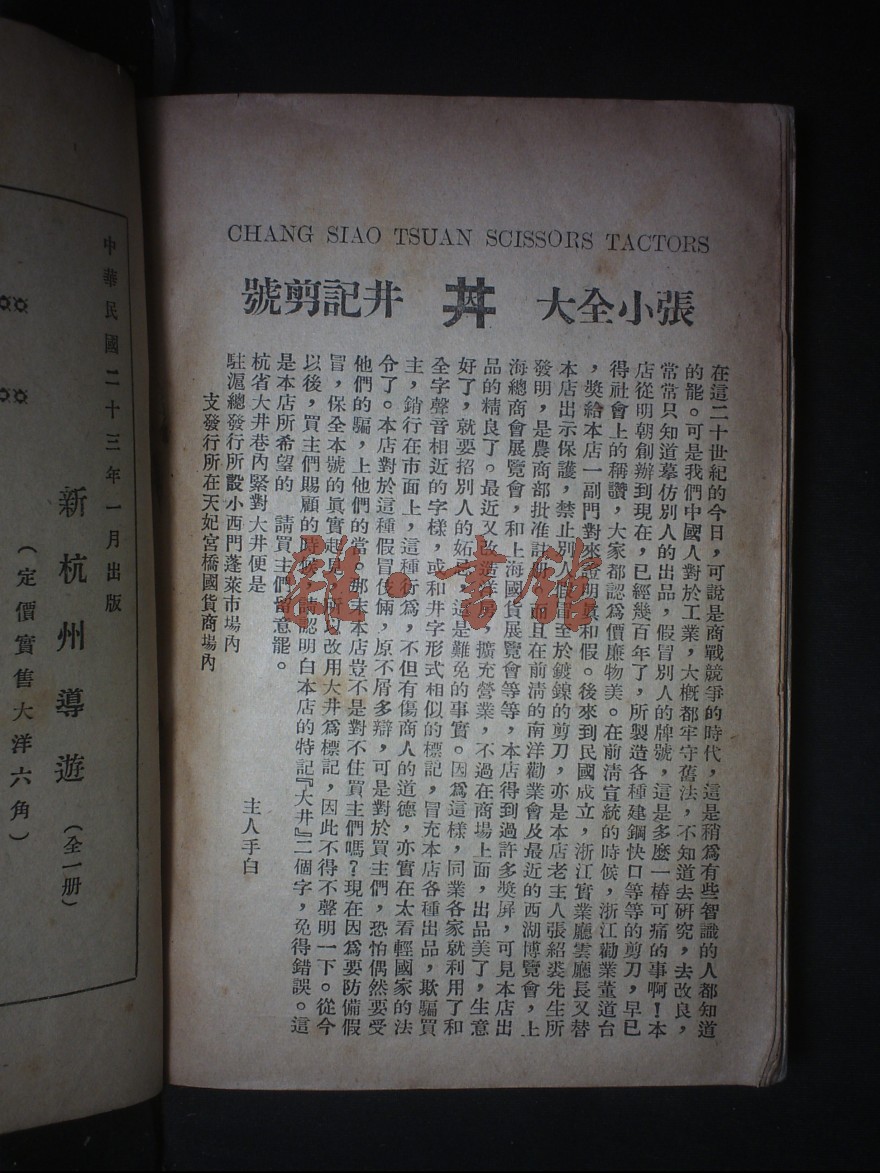 CHANG SIAO TSUAN SCISSORS TACTORS
張小全大 井記剪號
在這二十世紀的今日，可說是商戰競爭的時代，這是稍爲有些智識的人都知道
的能。可是我們中國人對於工業，大槪都牢守舊法，不知道去硏究，去改良，
常常只知道摹仿別人的出品，假冒別人的牌號，這是多麽一樁可痛的事啊！本
店從明朝創辦到現在，已經幾百年了，所製造各種建鋼快口等等的剪刀，早已
得社會上的稱讚，大家都認爲價廉物美。在前清宣統的時候，浙江勸業董道台
，奬給本店一副門對來證明眞和假。後來到民國成立，浙江實業廳雲廳長又替
本店出示保護，禁止別人假冒至於鍍鎳的剪刀，亦是本店老主人張紹裘先生所
發明，是農商部批准註册，而且在前淸的南洋勸業會及最近的西湖博覽會，上
海總商會展覽會，和上海國貨展覽會等等，本店得到過許多奬屏，可見本店出
品的精良了。最近又改造洋房，擴充營業，不過在商場上面，出品美了，生意
好了，就要招別人的妬忌，這是難免的事實。因爲這樣，同業各家就利用了和
全字聲音相近的字樣，或和井字形式相似的標記，冒充本店各種出品，欺騙買
主，銷行在市面上，這種行爲，不但有傷商人的道德，亦實在太看輕國家的法
令了。本店對於這種假冒伎倆，原不屑多辯，可是對於買主們，恐怕偶然要受
他們的騙，上他們的當。那末本店豈不是對不住買主們嗎？現在因爲要防備假
冒，保全本號的眞實起見，所以改用大井爲標記，因此不得不聲明一下。從今
以後，買主們賜顧的時候，請認明白本店的特記『大井』二個字，免得錯誤。這
是本店所希望的 請買主們留意罷。
杭省大井巷內緊對大井便是
主人手白
駐滬總發行所設小西門蓬萊市場內
支發行所在天妃宮橋國貨商場內
中華民國二十三年一月出版
新杭州導遊（全一册）
（定價實售大洋六角）
雜·書館